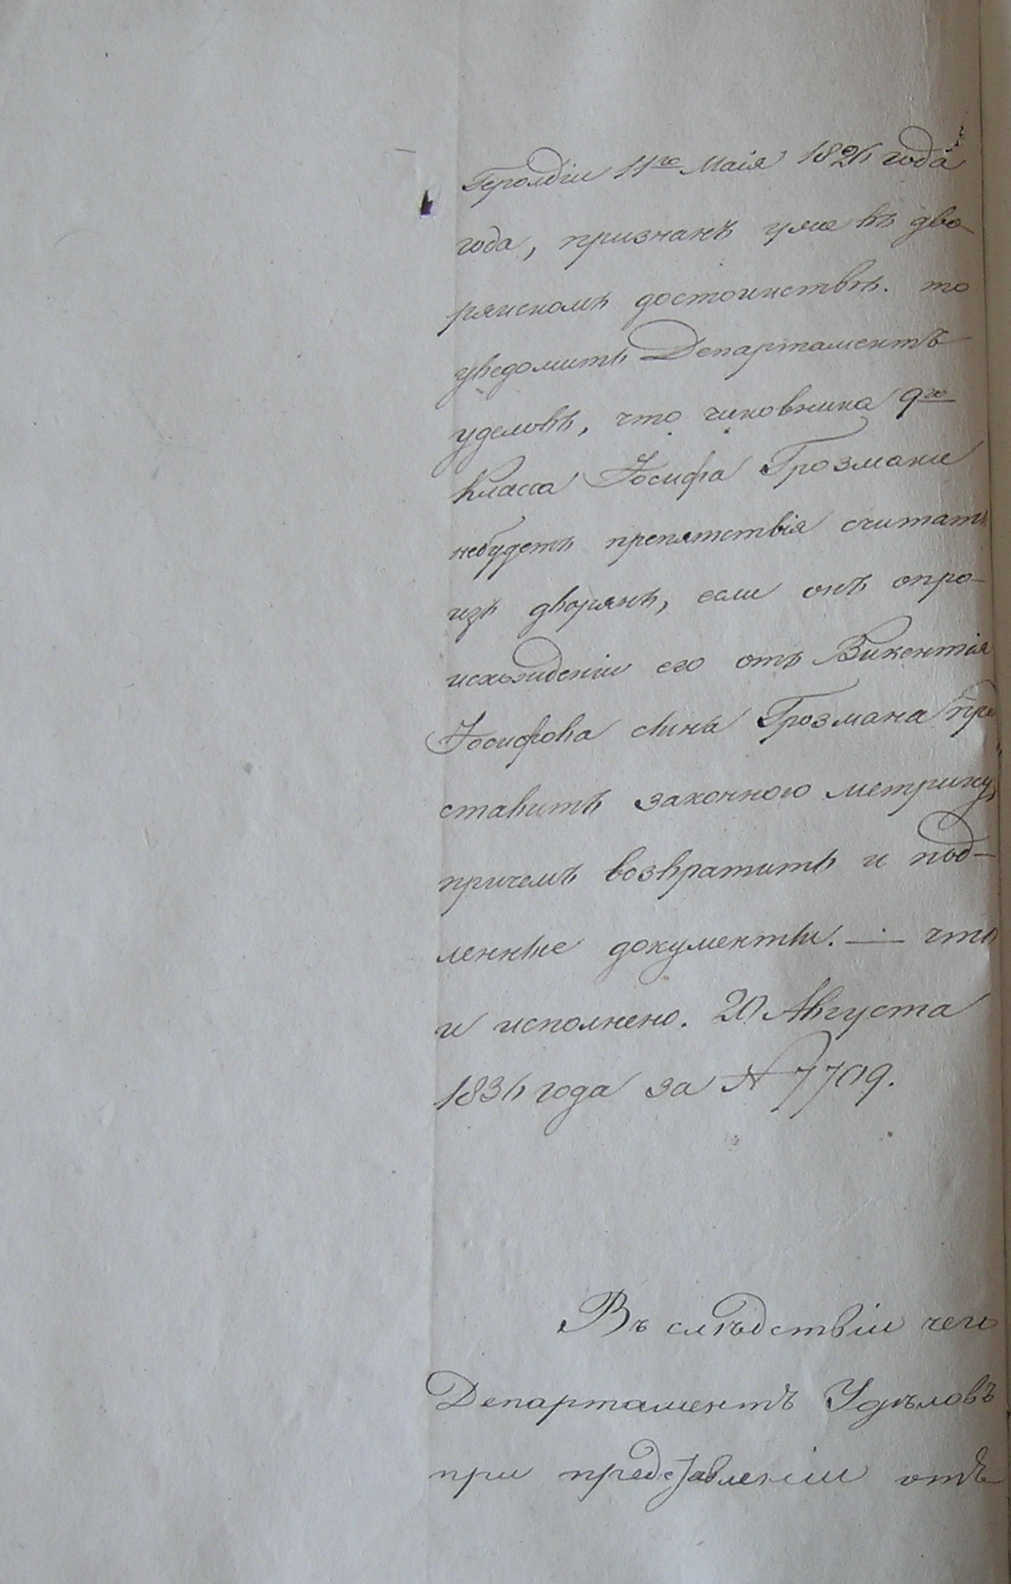 Герольдіи 11го Маія 1821 года
года, признанъ уже въ дво
рянскомъ достоинствѣ. то
уведомить Департаментъ
уделовъ, что чиновника 9го
класса Іосифа Грозмани
небудетъ препятствія считать
изъ дворянъ, если онъ опро-
исхожденіи его отъ Викентія
Іосифова сына Грозмана пред
ставитъ законного метрику,
причемъ возвратить и под-
ленные документы. — что
и исполнено. 20 Августа
1834 года за № 7709.
Въ слѣдствіи чего
Департаментъ Удѣловъ
при представленіи отъ